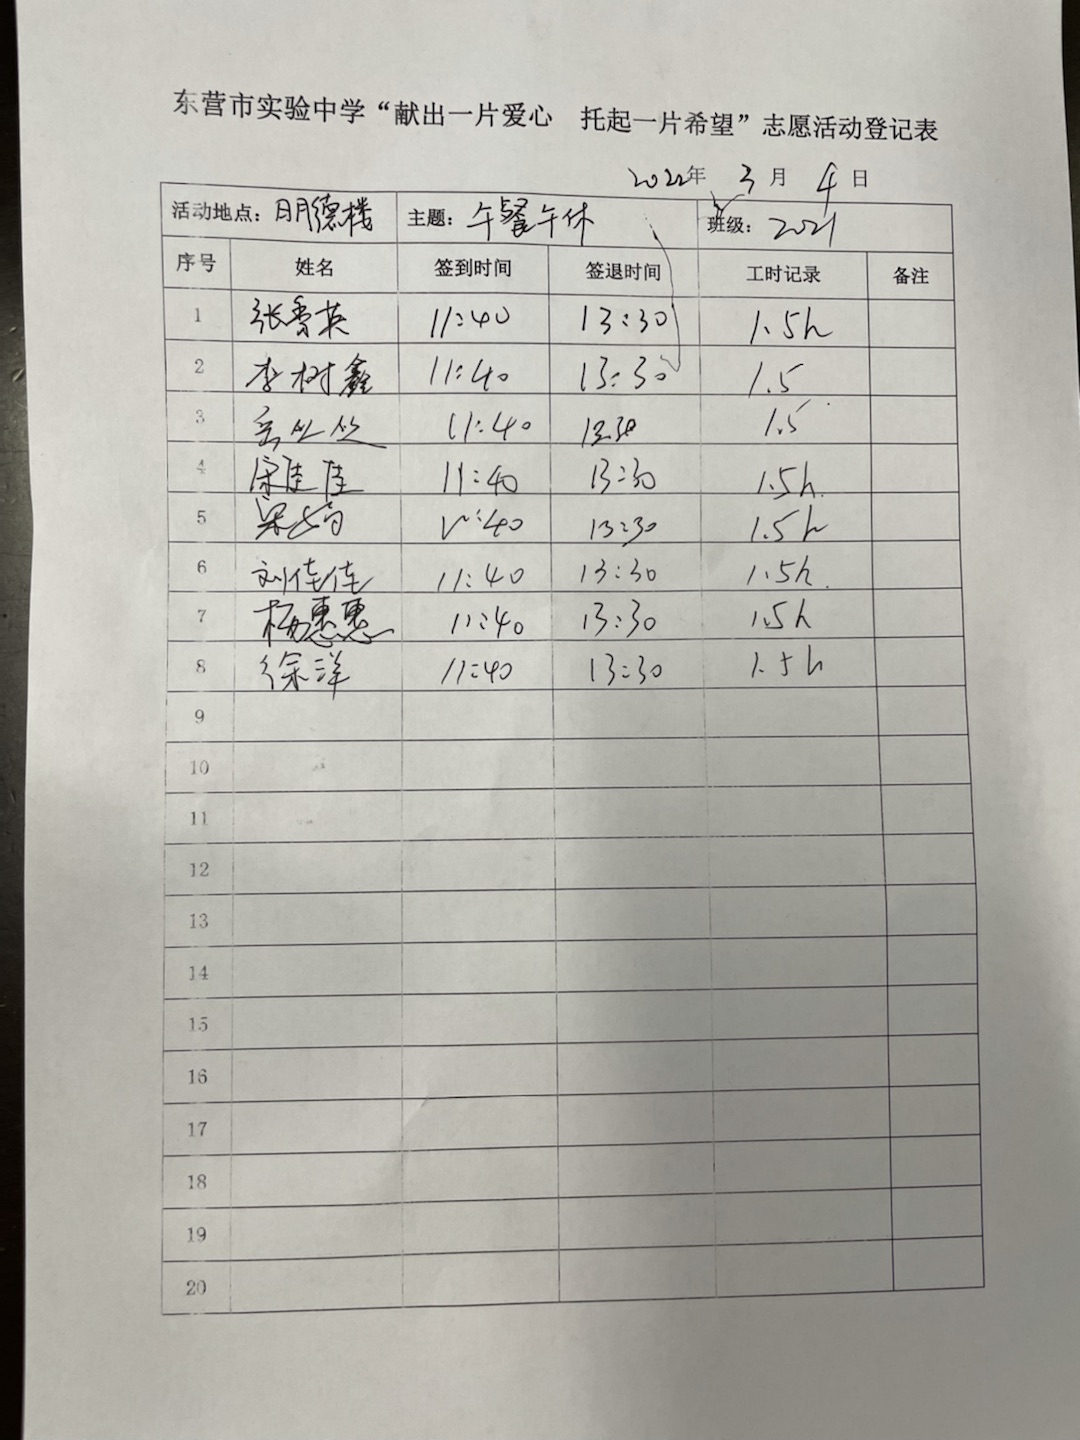 东营市实验中学“献出一片爱心 托起一片希望”志愿活动登记表
2022年 3月 4日
活动地点：明德楼 主题：午餐午休 班级：2021
序号 姓名 签到时间 签退时间 工时记录 备注
1 张秀英 11:40 13:30 1.5h
2 李树鑫 11:40 13:30 1.5
3 11:40 13:30 1.5
4 宋佳佳 11:40 13:30 1.5h
5 11:40 13:30 1.5h
6 刘佳佳 11:40 13:30 1.5h
7 杨惠惠 11:40 13:30 1.5h
8 徐洋 11:40 13:30 1.5h
9
10
11
12
13
14
15
16
17
18
19
20